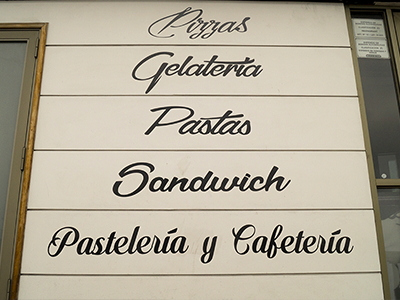 Pizzas
Gelatería
Pastas
Sandwich
Pastelería y Cafetería